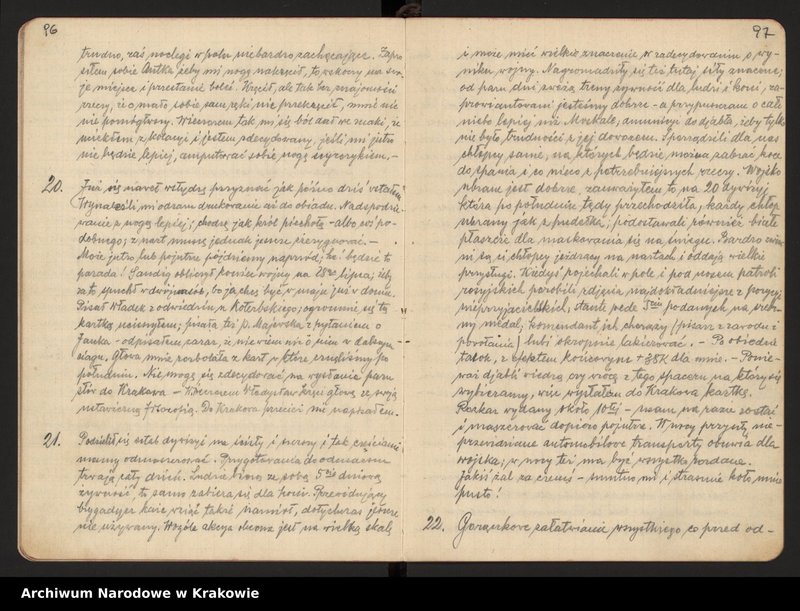 96
trudno, zaś noclegi w polu nie bardzo zachęcające. Zapro
siłem sobie Antka żeby mi nogę nakręcił, to wskoczy na swo
je miejsce i przestanie boleć. Kręcił, ale tak bez znajomości
rzeczy, iż o mało sobie sam ręki nie przekręcił, mnie nie
nie pomógłszy. Wieczorem tak mi się ból dał we znaki, że
jestem zdecydowany, jeśli mi jutro
nie będzie lepiej, amputować sobie nogę scyzorykiem. –
20. Już się nawet wstydzę przyznać jak późno dziś wstałem.
mi odzam drukowanie aż do obiadu. Nadspodzie-
wanie z nogą lepiej; chodzę jak król piechotę – albo coś po-
dobnego; z nart muszę jednak jeszcze zrezygnować. –
Może jutro lub pojutrze pójdziemy naprzód; ha! będzie to
parada! Sandig obliczył koniec wojny na 28go lipca; żeby
za to spuchł w dwójnasób, bo ja chcę być w maju już w domu.
Pisał Władek z odwiedzin z Koterbskiego; ogromnie się tą
kartką ucieszyłem; pisała też p. Majewska z pytaniem o
Janka – odpisałem zaraz, że nie wiem nic o nim w dalszym
ciągu. Głowa mnie rozbolała z kart w które graliśmy po
południu. Nie mogę się zdecydować na wysłanie paru
słów do Krakowa – Wieczorem Władysław kręci głową ze swoją
ustawiczną filozofią. Do Krakowa przecież nie napisałem.
21. Podzielił się sztab dywizyi na ścisły i i tak częściami
mamy odmaszerować. Przygotowania do odmarszu
trwają cały dzień. Ludzie biorą ze sobą 5cio dniową
żywność, to samo zabiera się dla koni. Przewidujący
brygadyer każe wziąć także namiot, dotychczas jeszcze
nie używany. Wogóle akcya obecna jest na wielką skalę
97
i może mieć wielkie znaczenie w zadecydowaniu o wy-
niku wojny. Nagromadziły się też tutaj siły znaczne;
od paru dni zwożą treny żywność dla ludzi i koni, za-
prowiantowani jesteśmy dobrze – a przypuszczam o całe
niebo lepiej niż Moskale, amunicyi do djabła, żeby tylko
nie było trudności z jej dowozem. Sporządzili dla nas
chłopcy sanie, na których będzie można zabrać koce
do spania i co nieco z potrzebniejszych rzeczy. Wojsko
ubrane jest dobrze, zauważyłem to na 20 dywizyi
która po południu tędy przechodziła, każdy chłop
ubrany jak z pudełka; podostawali również białe
płaszcze dla maskowania się na śniegu. Bardzo
ni są ci chłopcy jeżdżący na nartach i oddają wielkie
przysługi. Kiedyś pojechali w pole i pod nosem patroli
rosyjskich porobili zdjęcia najdokładniejsze z pozycyi
nieprzyjacielskich, stante pede podanych na srebr-
ny medal; komendant ich chorąży (pisarz z zawodu i
powołania) lubi okropnie fakierować. – Po obiedzie
tarok, z efektem końcowym + 38K dla mnie. – Ponie-
waż djabli wiedzą czy wrócę z tego spaceru na który się
wybieramy, więc wysłałem do Krakowa kartkę.
Rozkaz wydany około 10tej – mam na razie zostać
i maszerować dopiero pojutrze. W nocy przyszły nie-
przewidziane automobilowe transporty obuwia dla
wojska; w nocy też ma być wszystko rozdane.
Jakiś żal za czemś – smutno mi i strasznie koło mnie
pusto!
22. Gorączkowe załatwianie wszystkiego co przed od-
Archiwum Narodowe w Krakowie